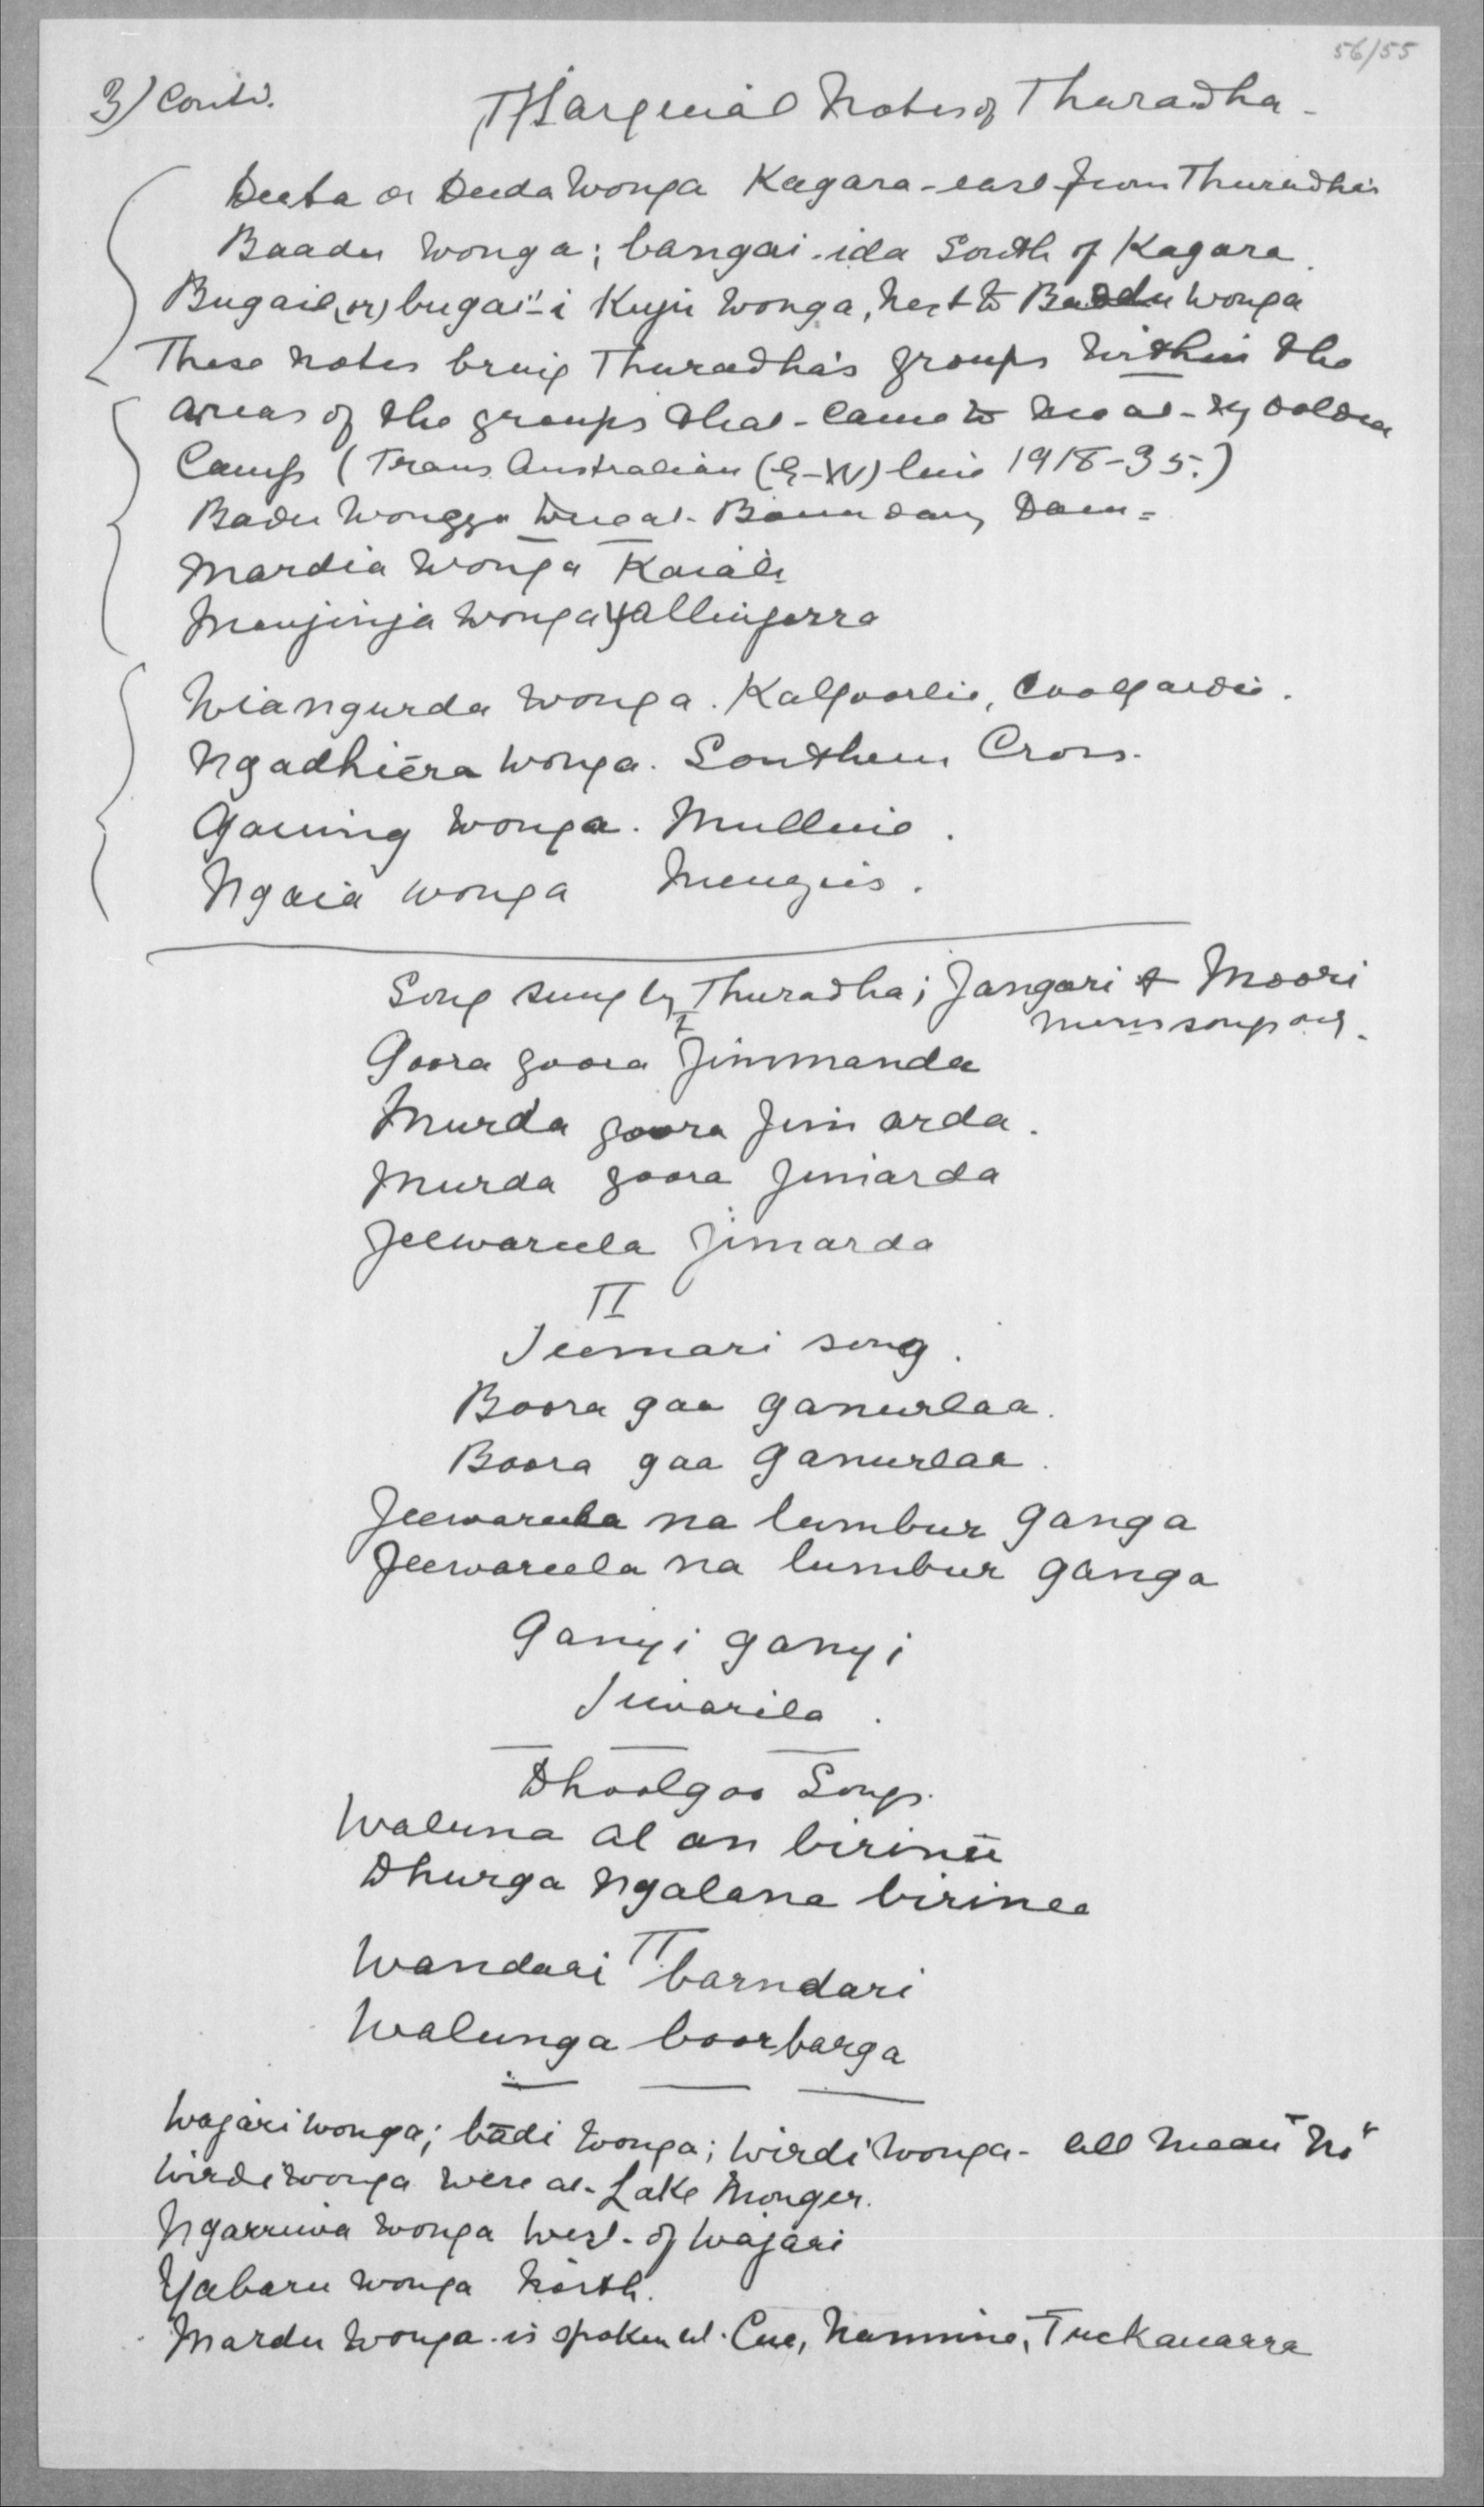 56/55
3) Contd. Marginal Notes of Thuradha -
Deeta or Deeda Wonga Kagara - east from Thuradha's
Baadu Wonga; bangai-ida South of Kagara.
Bugail (or) bugai-i Kuju Wonga, next to Baadu Wonga
These notes bring Thuradha's groups within the
areas of the groups that came to me at my Ooldea
Camp (Trans Australian (E-W) line 1918-35.)
Badu Wongga were at Boundary Dam =
Mardia Wonga Kaiali
Munjinja Wonga Yallingarra
Wiangurda Wonga. Kalgoorlie, Coolgardie.
Ngadhiēra Wonga. Southern Cross.
Gauing Wonga. Mulline.
Ngaia wonga Menzies.
Song sung by Thuradha; Jangari & Moori
I
Goora goora Jimmanda
Murda goora Jim arda.
Murda goora Jimarda
Jeewareela Jimarda
II
Jeemari song.
Boora gaa ganurlaa.
Boora gaa ganurlaa.
Jeewareela na lumbur ganga
Jeewareela na lumbur ganga
Ganyi ganyi
Jiwarila.
Dhoolgoo Songs.
Waluna al an birinii
Dhurga ngalana birinee
II
Wandari barndari
Walunga boorbarga
Wajari wonga; bādi wonga; wirdi wonga - all mean "No"
Wirdi wonga were at Lake Monger.
Ngarruwa wonga West of Wajari
Yabaru wonga North.
Mardu wonga is spoken at Cue, Nannine, Tuckanarra